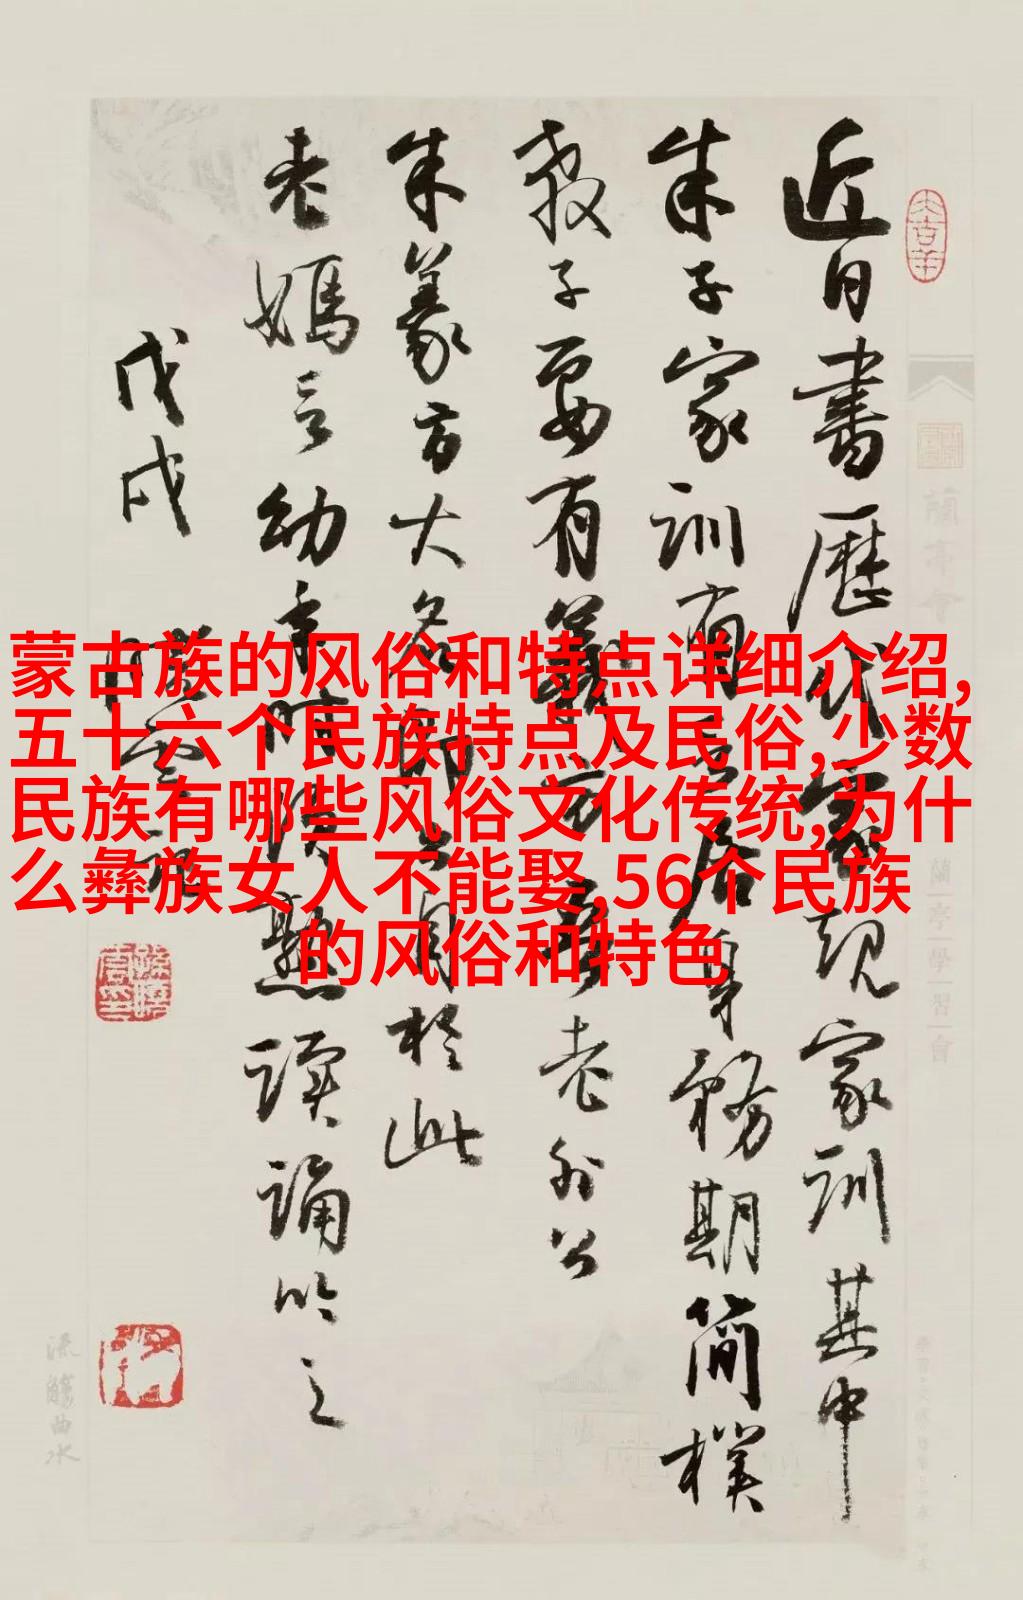 近日書歷代家規家訓其中
朱子家訓有云居身務期簡樸
教子要有義方老外公
朱篆方大名即出自於此
老媽言幼年時熟讀誦吟之
戊戌
蒙古族的风俗和特点详细介绍,
五十六个民族特点及民俗,少数
民族有哪些风俗文化传统,为什
么彝族女人不能娶,56个民族
的风俗和特色
蘭亭會
蘭亭學習會
流觴曲水